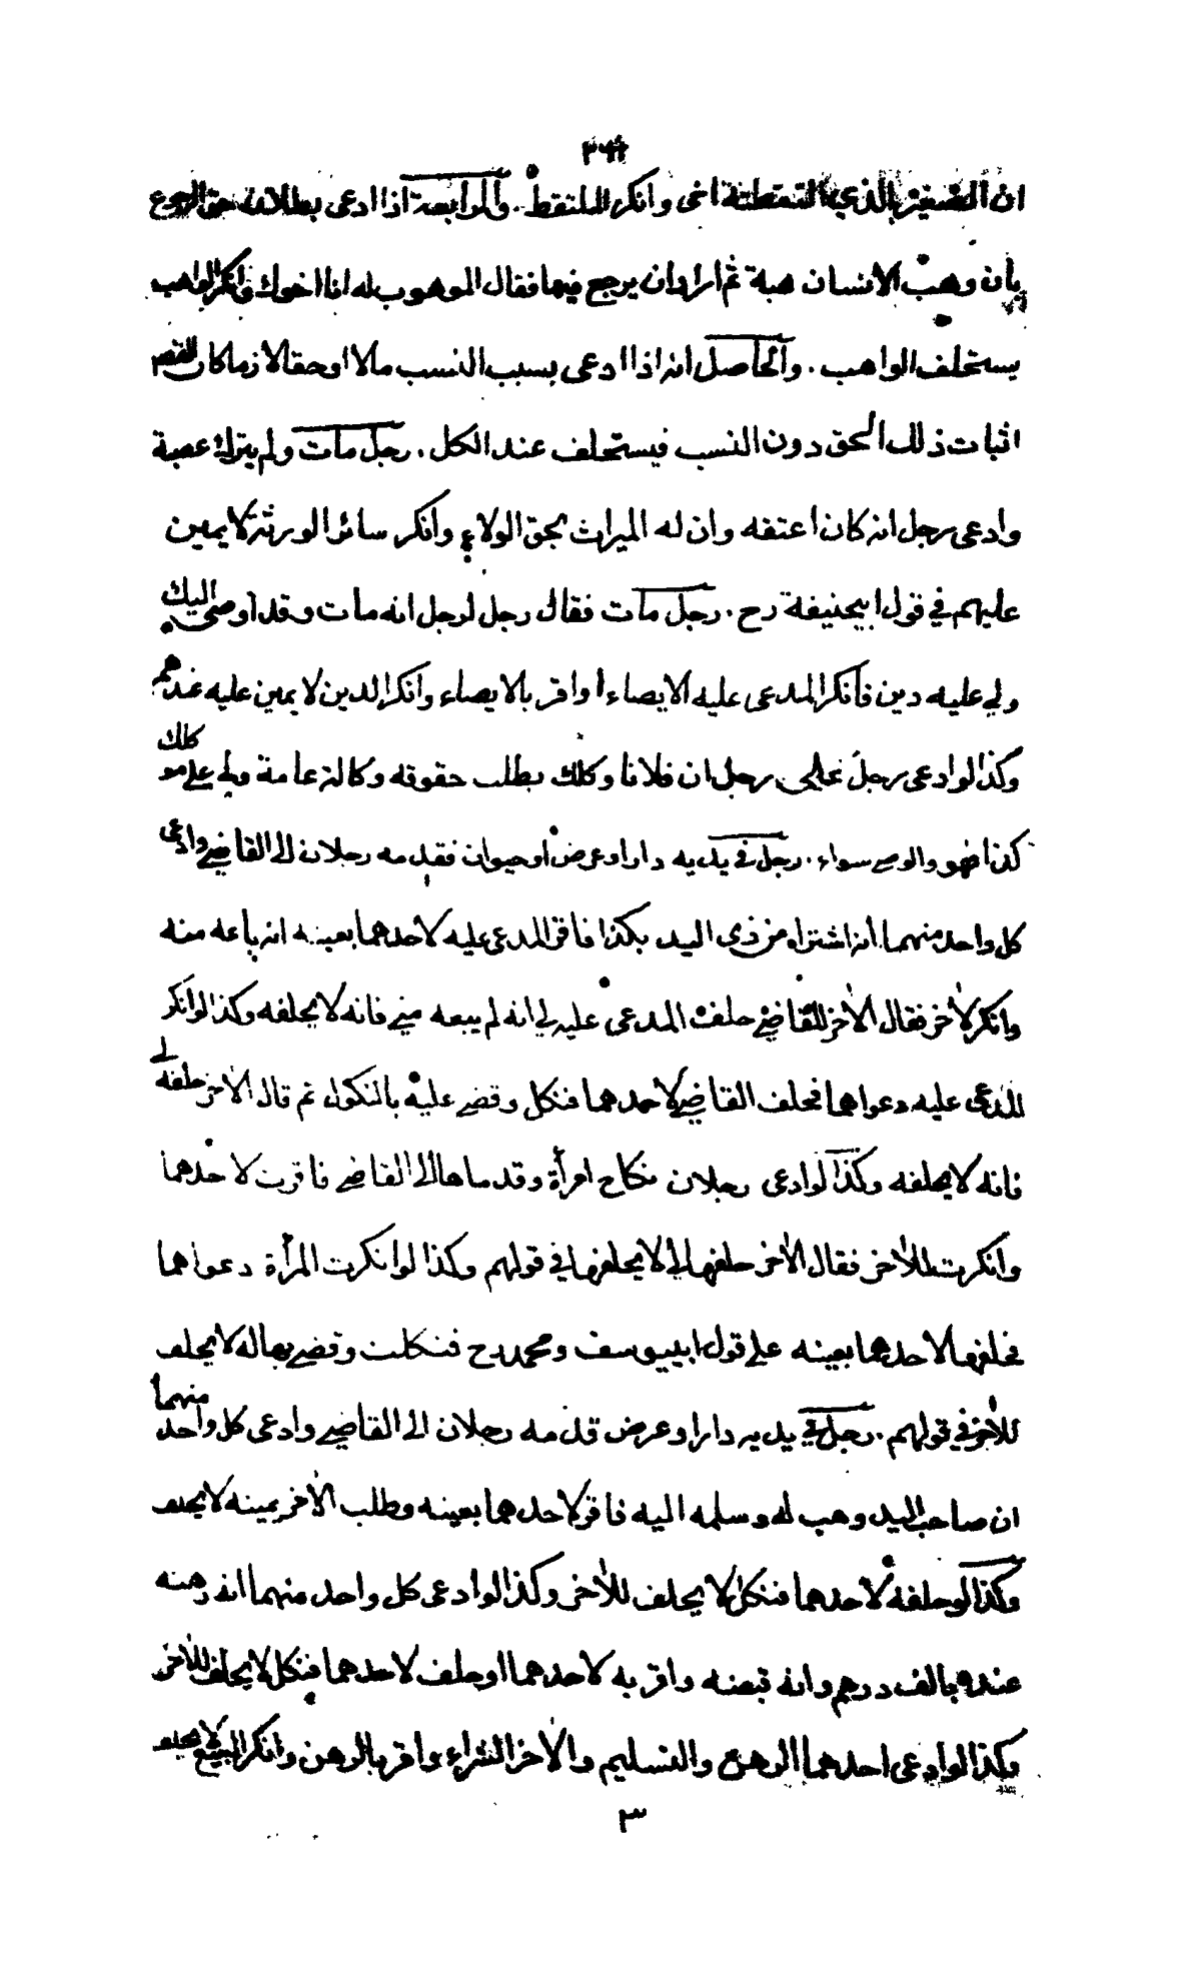 ان الصغير الذي التقطته اخى وانكر الملتقط . والرابعة اذا ادعى بطلان حق الرجوع
بأن وهب لانسان هبة ثم اراد ان يرجع فيها فقال الموهوب له انا اخوك وانكر الواهب
يستحلف الواهب . والحاصل انه اذا ادعى بسبب النسب مالا او حقا لازما كان القصد
اثبات ذلك الحق دون النسب فيستحلف عند الكل . رجل مات ولم يترك عصبة
وادعى رجل انه كان اعتقه وان له الميراث بحق الولاء وانكر سائر الورثة لا يمين
عليهم في قول ابيحنيفة رح . رجل مات فقال رجل لرجل انه مات وقد أوصى اليك
ولي عليه دين فأنكر المدعى عليه الايصاء او اقر بالايصاء وانكر الدين لا يمين عليه عندهم
وكذا لو ادعى رجل على رجل ان فلانا وكلك بطلب حقوقه وكالة عامة ولي على موكلك
كذا فهو والوصي سواء . رجل في يديه دار او عرض أو حيوان فقدمه رجلان الى القاضي وادعى
كل واحد منهما انه اشتراه من ذى اليد بكذا فاقر المدعى عليه لاحدهما بعينه انه باعه منه
وانكر لاخر فقال الاخر للقاضي حلف المدعى عليه لي انه لم يبعه مني فانه لا يحلفه وكذا لو انكر
المدعى عليه دعواهما فحلف القاضي لاحدهما فنكل وقضى عليه بالنكول ثم قال الاخر حلفه لي
فانه لا يحلفه وكذا لو ادعى رجلان نكاح امرأة وقدماها الى القاضي فاقرت لاحدهما
وانكرت للاخر فقال الاخر حلفها لي لا يحلفها في قولهم وكذا لو انكرت المرأة دعواهما
فحلفها لاحدهما بعينه على قول ابييوسف ومحمد رح فنكلت وقضى بها له لا يحلف
للاخر في قولهم . رجل في يديه دار او عرض قدمه رجلان الى القاضي وادعى كل واحد منهما
ان صاحب اليد وهب له وسلمه اليه فاقر لاحدهما بعينه وطلب الاخر يمينه لا يحلف
وكذا لو حلفه لاحدهما فنكل لا يحلف للاخر وكذا لو ادعى كل واحد منهما انه رهنه
عنده بالف درهم وانه قبضه واقر به لاحدهما او حلف لاحدهما فنكل لا يحلف للاخر
وكذا لو ادعى احدهما الرهن والتسليم والاخر الشراء واقر بالرهن وانكر البيع لا يحلف
٣